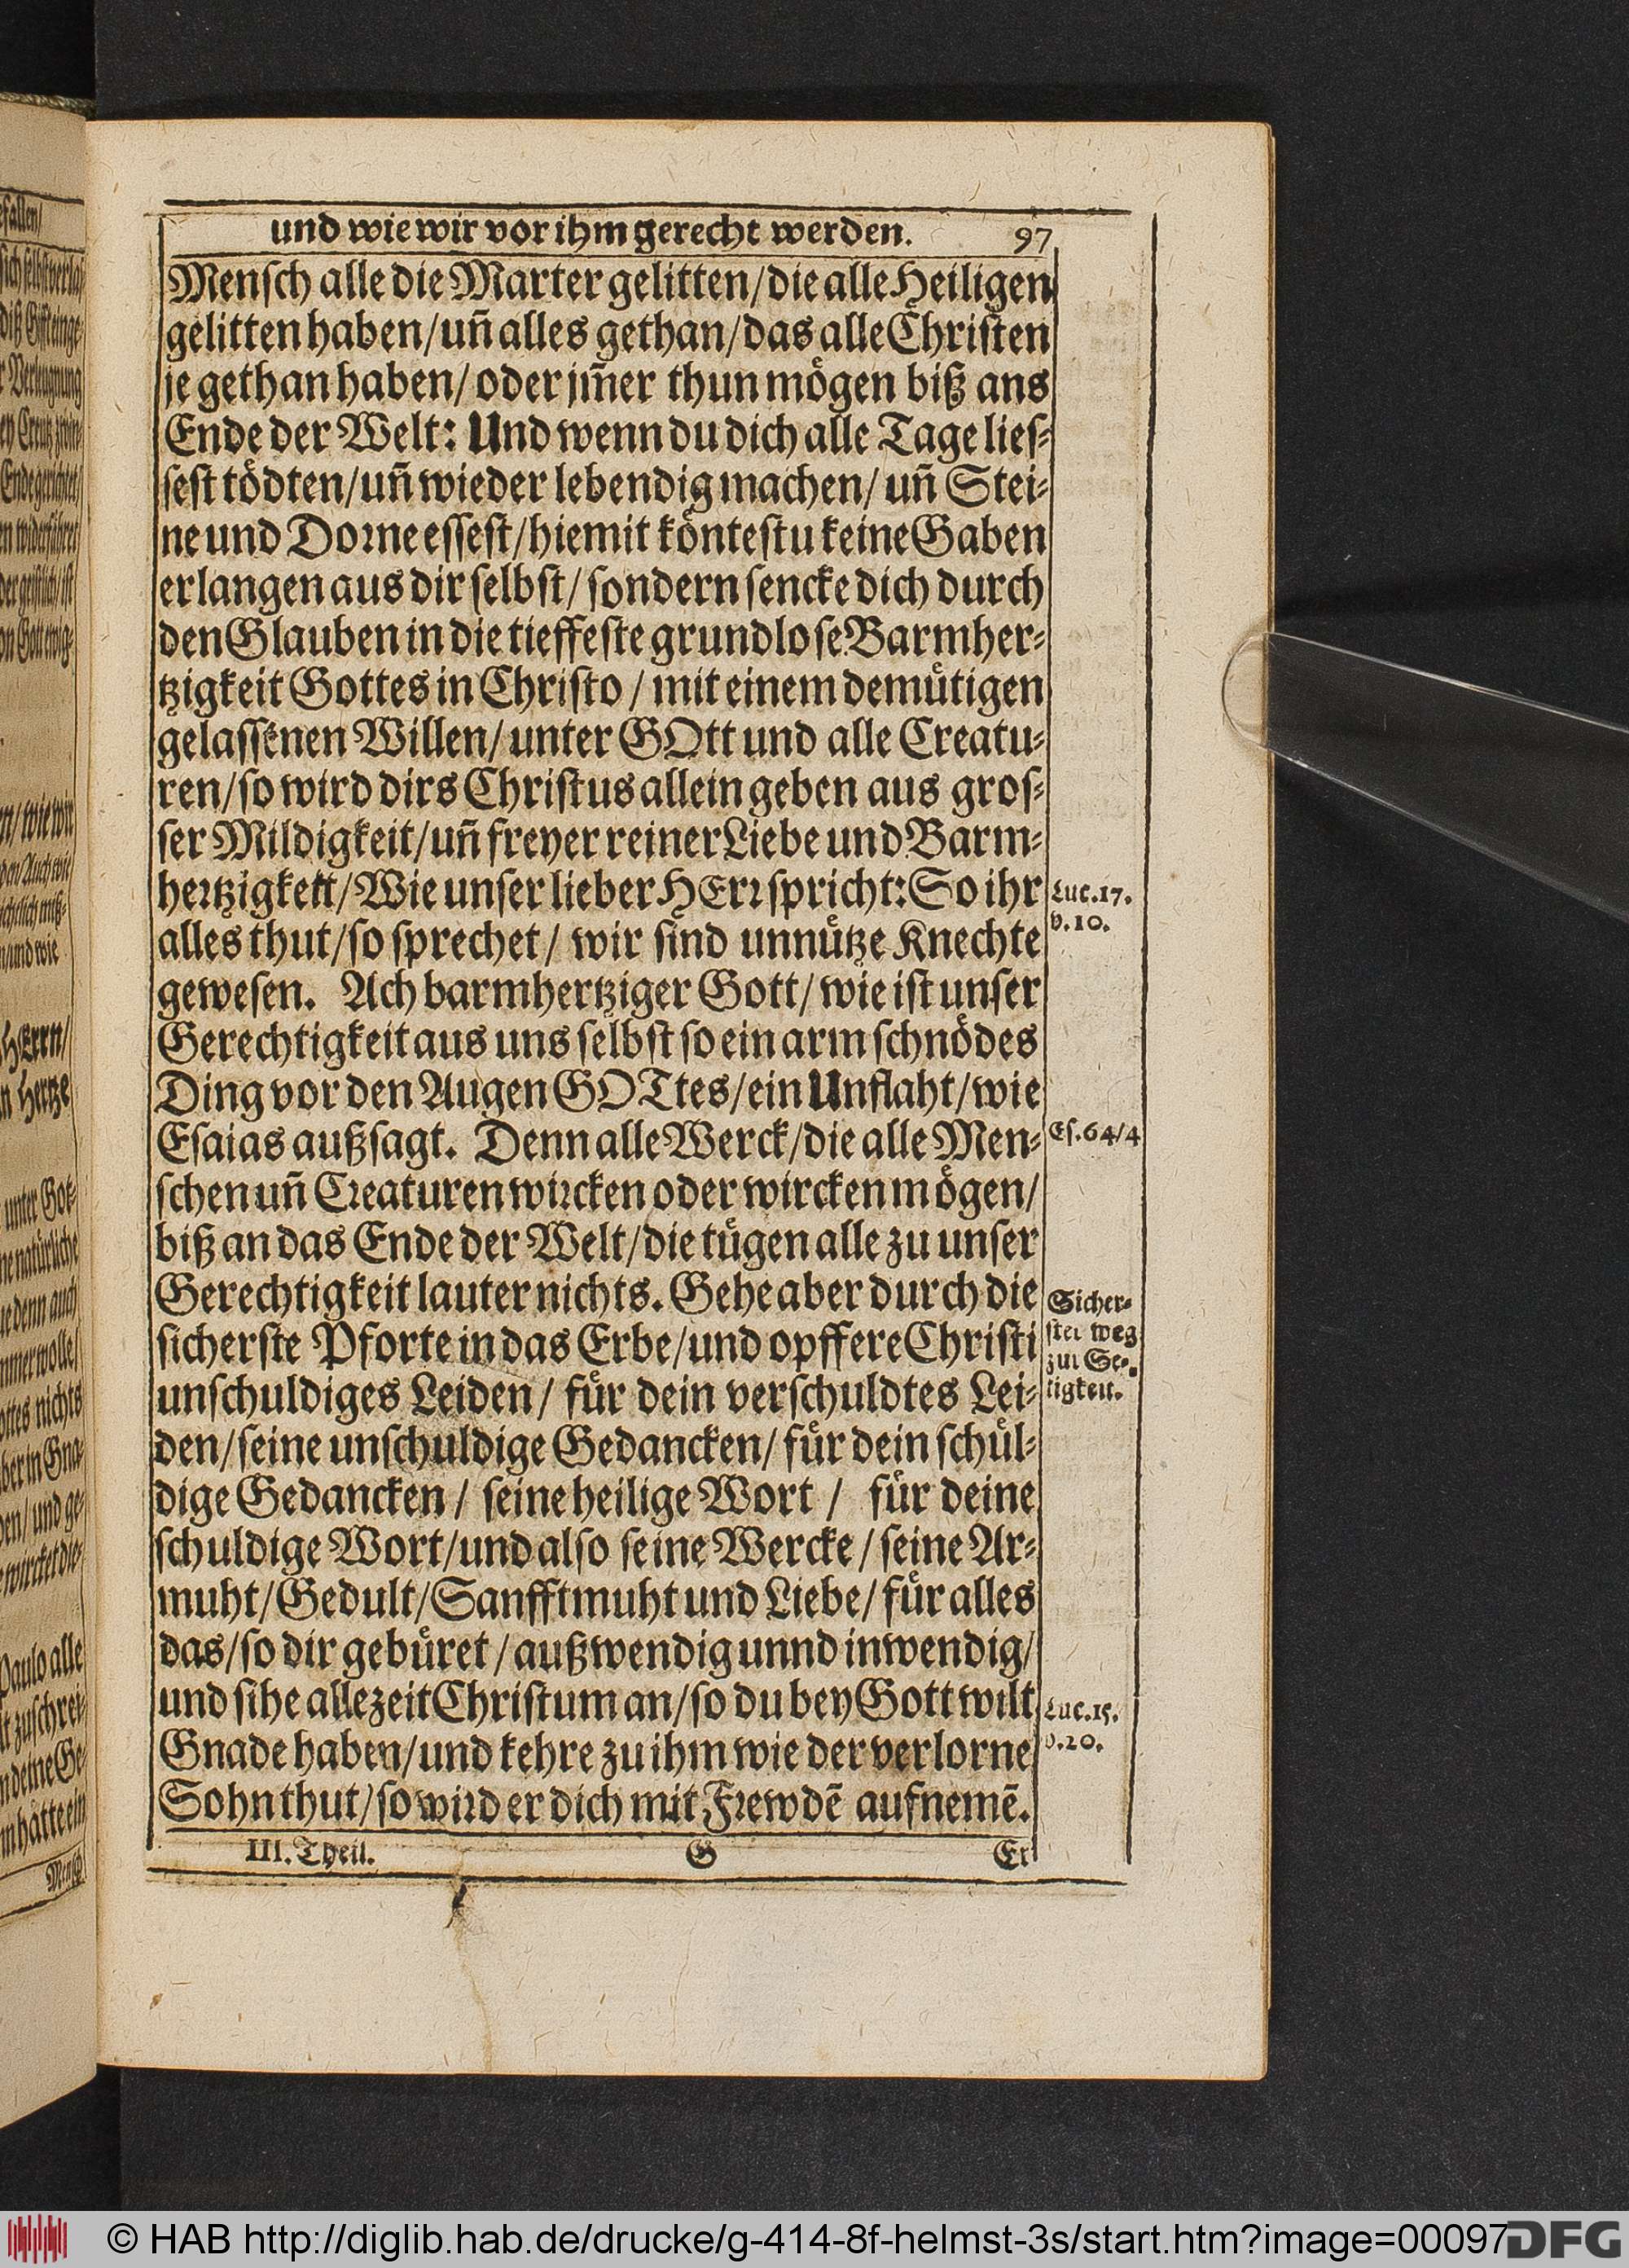 und wie wir vor ihm gerecht werden. 97
Menſch alle die Marter gelitten/die alle Heiligen
gelitten haben/uñ alles gethan/das alle Chriſten
je gethan haben/ oder jm̃er thun mögen biß ans
Ende der Welt: Und wenn du dich alle Tage lieſ-
ſeſt tödten/uñ wieder lebendig machen/ uñ Stei-
ne und Dorne eſſeſt/hiemit könteſtu keine Gaben
erlangen aus dir ſelbſt/ ſondern ſencke dich durch
den Glauben in die tieffeſte grundloſe Barmher-
tzigkeit Gottes in Chriſto / mit einem demütigen
gelaſſenen Willen/ unter GOtt und alle Creatu-
ren/ſo wird dirs Chriſtus allein geben aus groſ-
ſer Mildigkeit/uñ freyer reiner Liebe und Barm-
hertzigkeit/Wie unſer lieber HErr ſpricht: So ihr
Luc.17.
v.10.
alles thut/ſo ſprechet/ wir ſind unnütze Knechte
geweſen. Ach barmhertziger Gott/ wie iſt unſer
Gerechtigkeit aus uns ſelbſt ſo ein arm ſchnödes
Ding vor den Augen GOTtes/ein Unflaht/wie
Eſaias außſagt. Denn alle Werck/die alle Men-
Eſ.64/4
ſchen uñ Creaturen wircken oder wircken mögen/
biß an das Ende der Welt/die tügen alle zu unſer
Gerechtigkeit lauter nichts. Gehe aber durch die
Sicher-
ſter weg
zur Se-
ligkeit.
ſicherſte Pforte in das Erbe/und opffere Chriſti
unſchuldiges Leiden/ für dein verſchuldtes Lei-
den/ſeine unſchuldige Gedancken/ für dein ſchül-
dige Gedancken/ ſeine heilige Wort / für deine
ſchuldige Wort/und alſo ſeine Wercke/ ſeine Ar-
muht/Gedult/Sanfftmuht und Liebe/ für alles
das/ſo dir gebüret/ außwendig unnd inwendig/
und ſihe allezeit Chriſtum an/ſo du bey Gott wilt
Luc.15.
v.20.
Gnade haben/und kehre zu ihm wie der verlorne
Sohn thut/ſo wird er dich mit Frewdẽ aufnemẽ.
III. Theil. G Er
© HAB http://diglib.hab.de/drucke/g-414-8f-helmst-3s/start.htm?image=00097
DFG